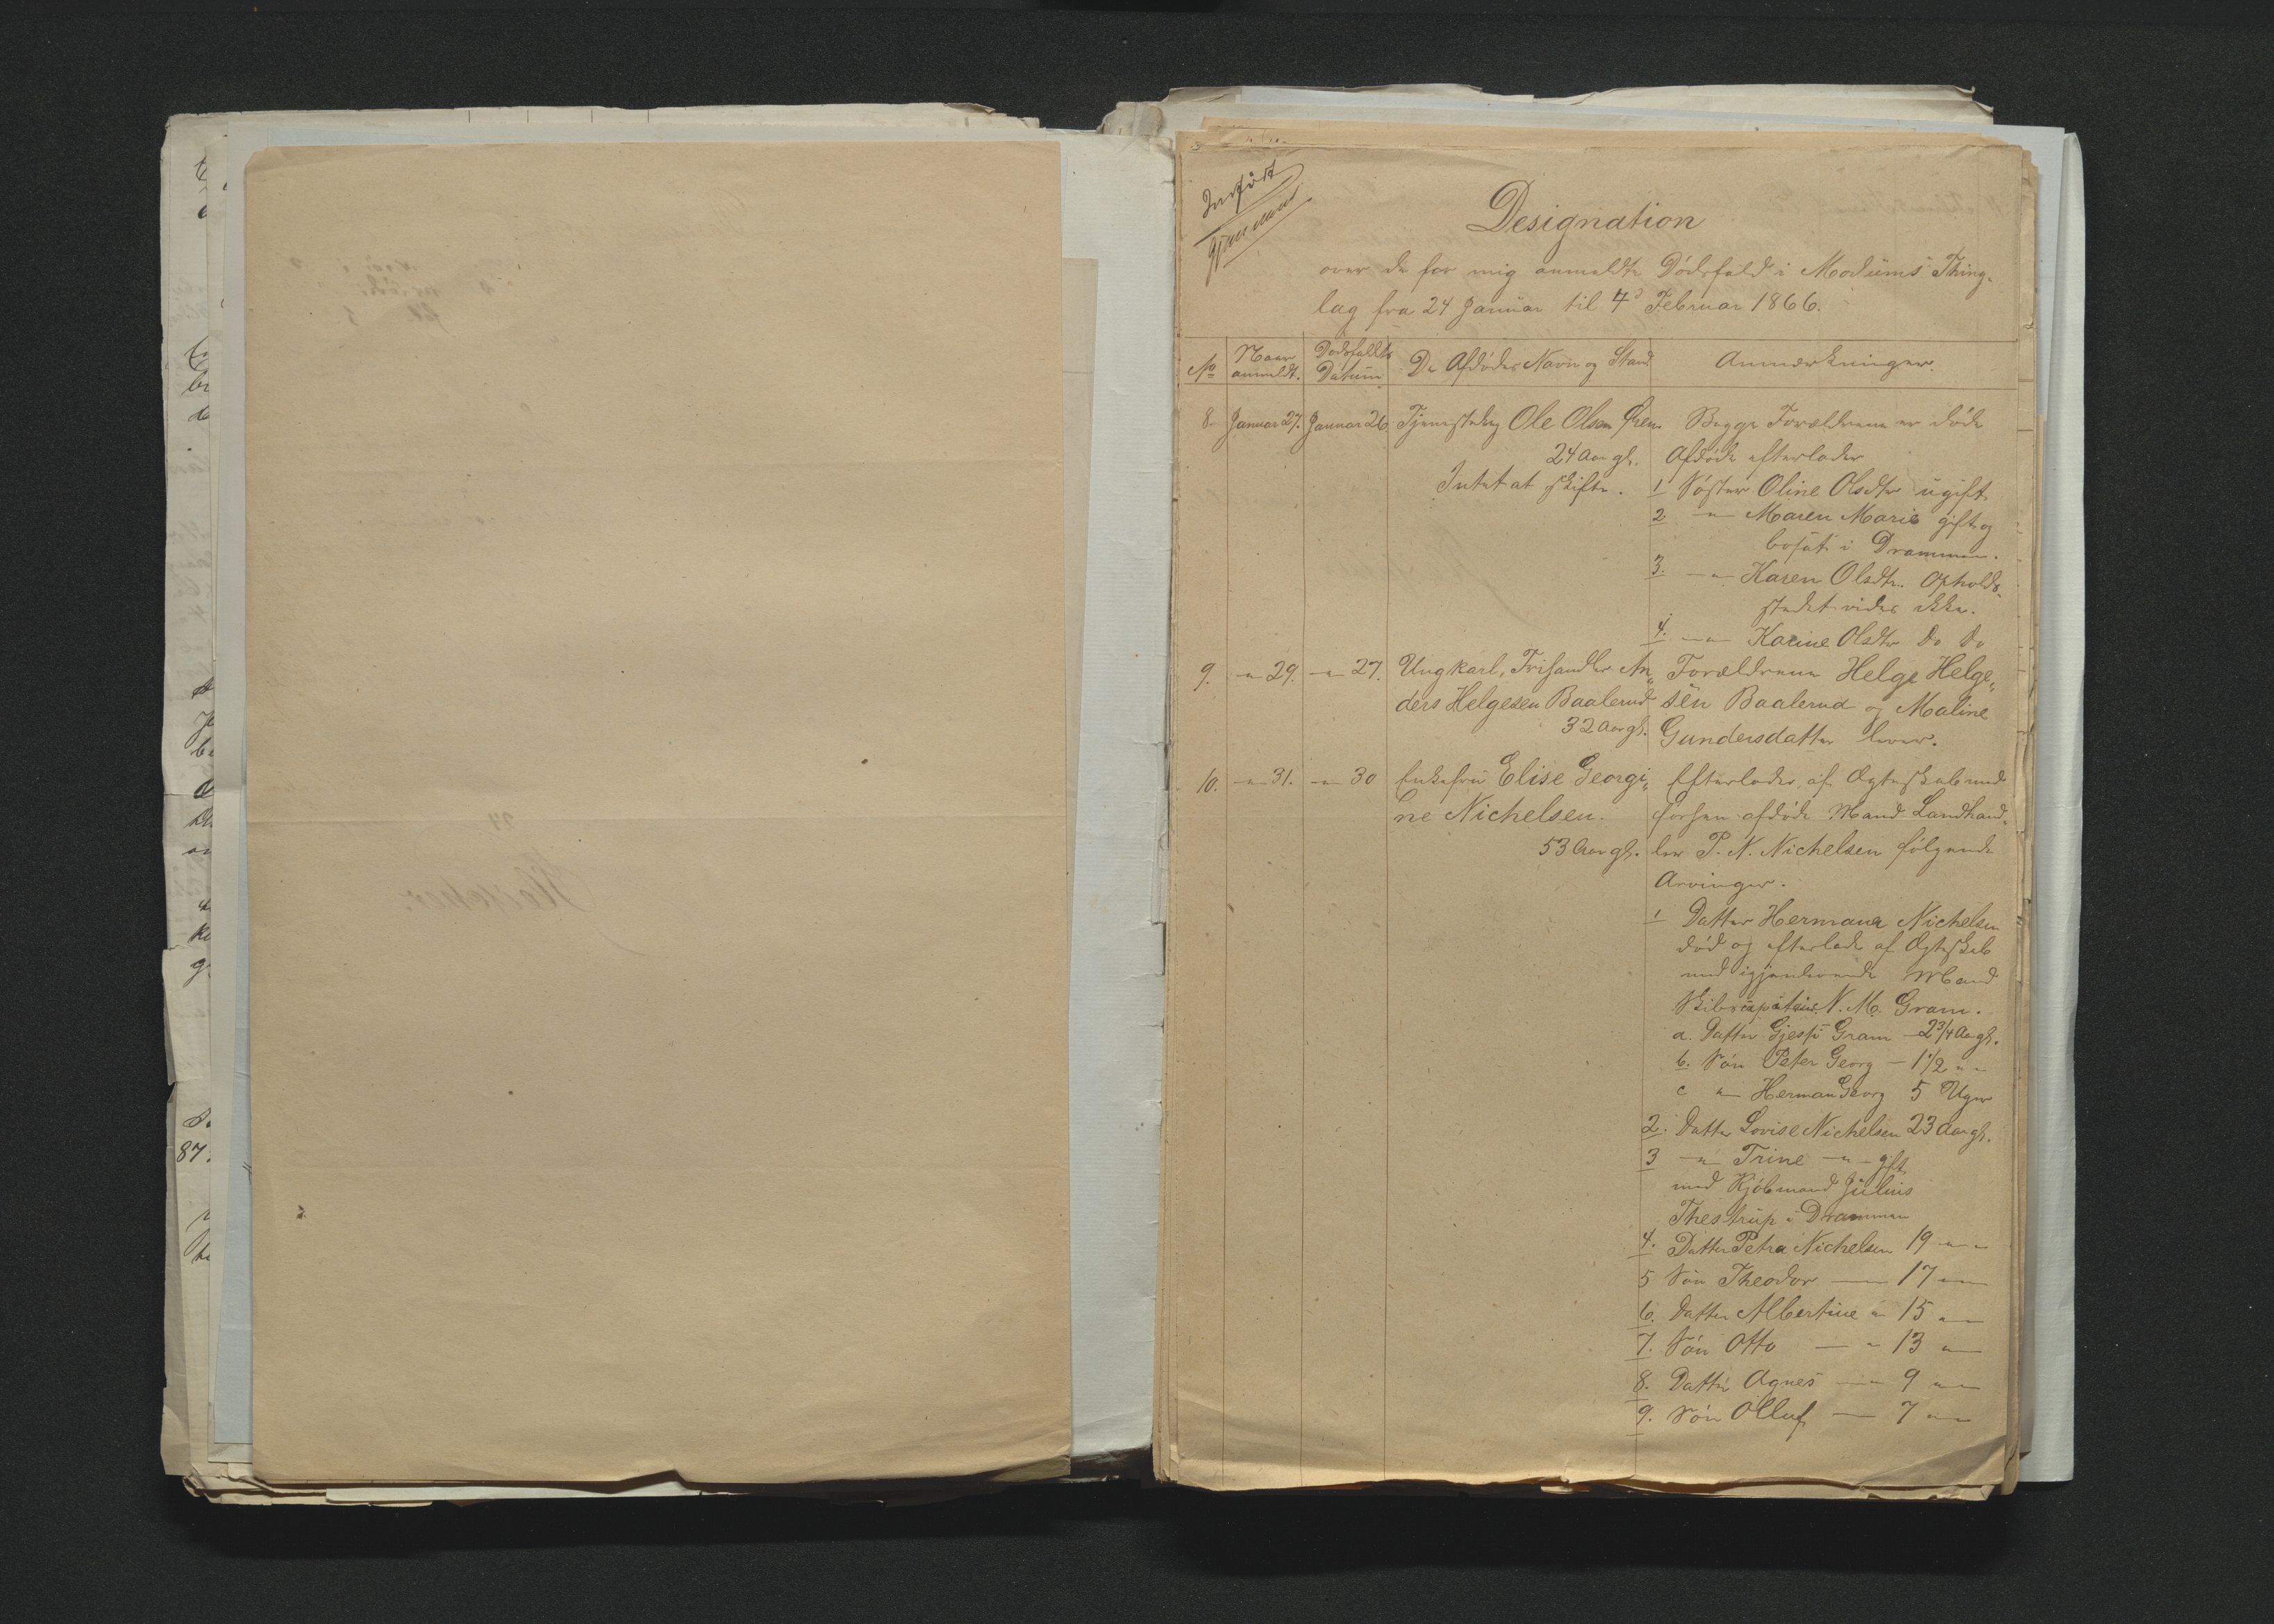 Indført
Designation
over de for mig anmeldte Dödsfald i Modums Thing-
lag fra 24 Januar til 7d Februar 1866.
No
Naar anmeldt.
Dödsfaldets Datum
De Afdödes Navn og Stand
Anmærkninger.
8. Januar 27. Januar 26. Tjenestedreng Ole Olsen Øren
24 Aar gl.
Intet at skifte.
Begge Forældrene er döde
Afdöde efterlader
1 Söster Oline Olsdtr ugift
2. -"- Maren Marie gift og
bosat i Drammen.
3. -"- Karen Olsdtr. Opholds-
stedet vides ikke.
4. -"- Karine Olsdtr Do Do
9. -"- 29. -"- 27. Ungkarl, Frihandler An„
ders Helgesen Baalerud
32 Aar gl.
Forældrene Helge Helge„
sen Baalerud og Maline
Gundersdatter lever.
10. -"- 31. -"- 30 Enkefru Elise Georgi„
ne Nichelsen.
53 Aar gl.
Efterlader af Ægteskab med
forhen afdöde Mand Landhand„
ler P. N. Nichelsen fölgende
Arvinger.
1 Datter Hermana Nichelsen
död og efterlade af Ægteskab
med igjenlevende Mand
Skibscapitain N. M. Gram.
a. Datter Gjesti Gram - 2 3/4 Aar gl.
b. Sön Peter Georg - 1 1/2 " -
c " - Herman Georg 5 Uger
2. Datter Lovise Nichelsen 23 Aar gl.
3 -"- Trine -"- gift
med Kjöbmand Julius
Thestrup i Drammen
4. Datter Petra Nichelsen 19 -"-
5 Sön Theodor — 17 -"-
6. Datter Albertine " 15 -"-
7. Sön Otto — " 13 "-
8. Datter Agnes -"- 9 -"-
9. Sön Olluf — 7 -"-